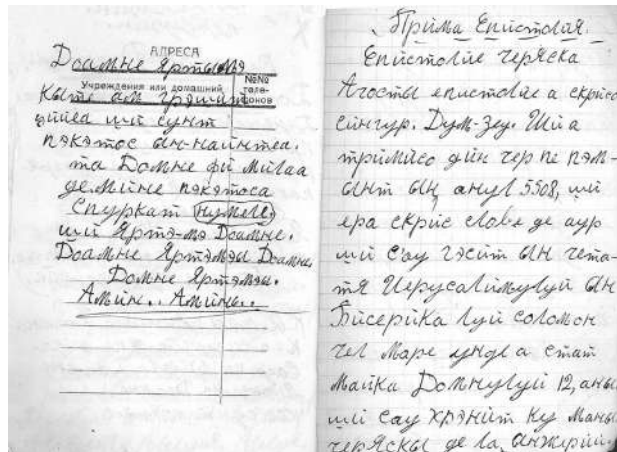 АДРЕСА
Доамне Яртымэ
Учреждения или домашний
№№ теле-
фонов
Кыте ам грэшит
шй сунт
пэкэтос ын-наинтеа.
та Домне фй милаа
де мине пэкэтоса
Спуркат нумеле.
шй Яртэ-мэ Доамне.
Доамне Яртэмэы Доамне,
Домне Яртэмэы.
Амын.. Амины..
Прима Епистолия.
Епистолие черяска
Ачосты епистолие а скрисо
сингур. Дум-Зеу. Шй а
тримисо дин чер пе пэм-
ынт ын, анул 5508, шй
ера скрис слове де аур
шй сау гэсит ын чета-
тя Иерусалимулуй ын
Бисерика луй соломон
чел маре унде а стат
Майка Домнулуй 12, аны
шй сау хрэнит ку маны
черяскы де ла, анжерий.